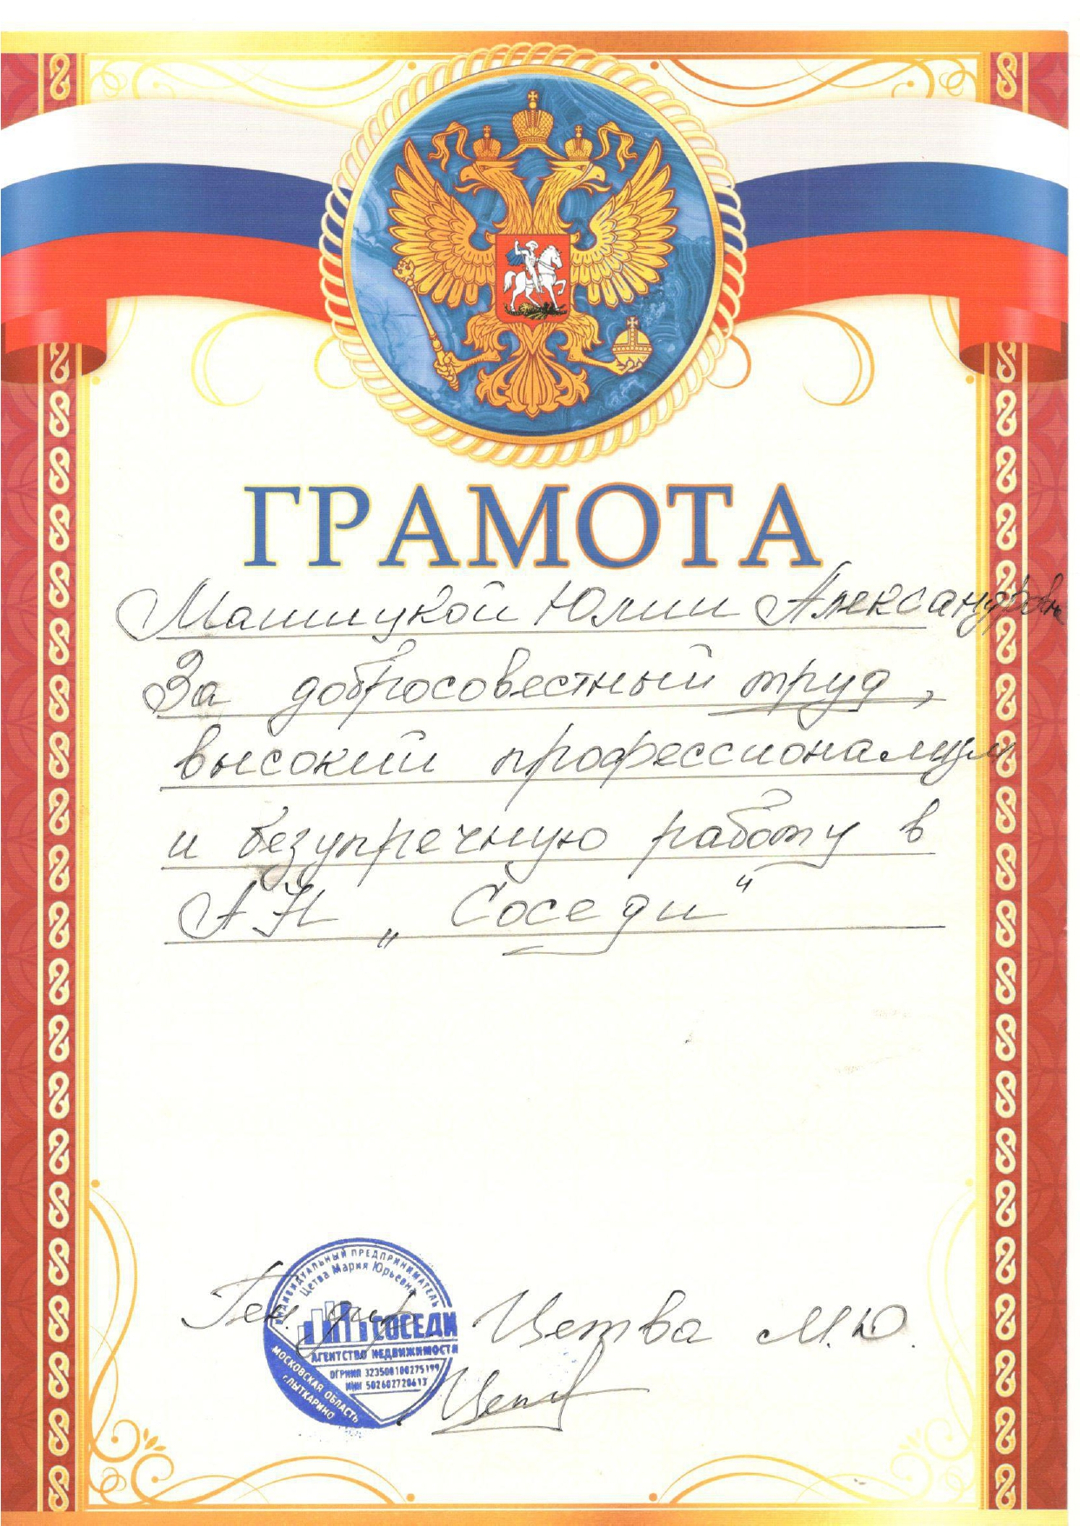 ГРАМОТА
Машицкой Юлии Александровне
За добросовестный труд,
высокий профессионализм
и безупречную работу в
АН „Соседи"
ИНДИВИДУАЛЬНЫЙ ПРЕДПРИНИМАТЕЛЬ
Цетва Мария Юрьевна
СОСЕДИ
АГЕНТСТВО НЕДВИЖИМОСТИ
ОГРНИП 323508100275199
ИНН 502602720613
МОСКОВСКАЯ ОБЛАСТЬ
г. ЛЫТКАРИНО
Ген. дир. Цетва М.Ю.